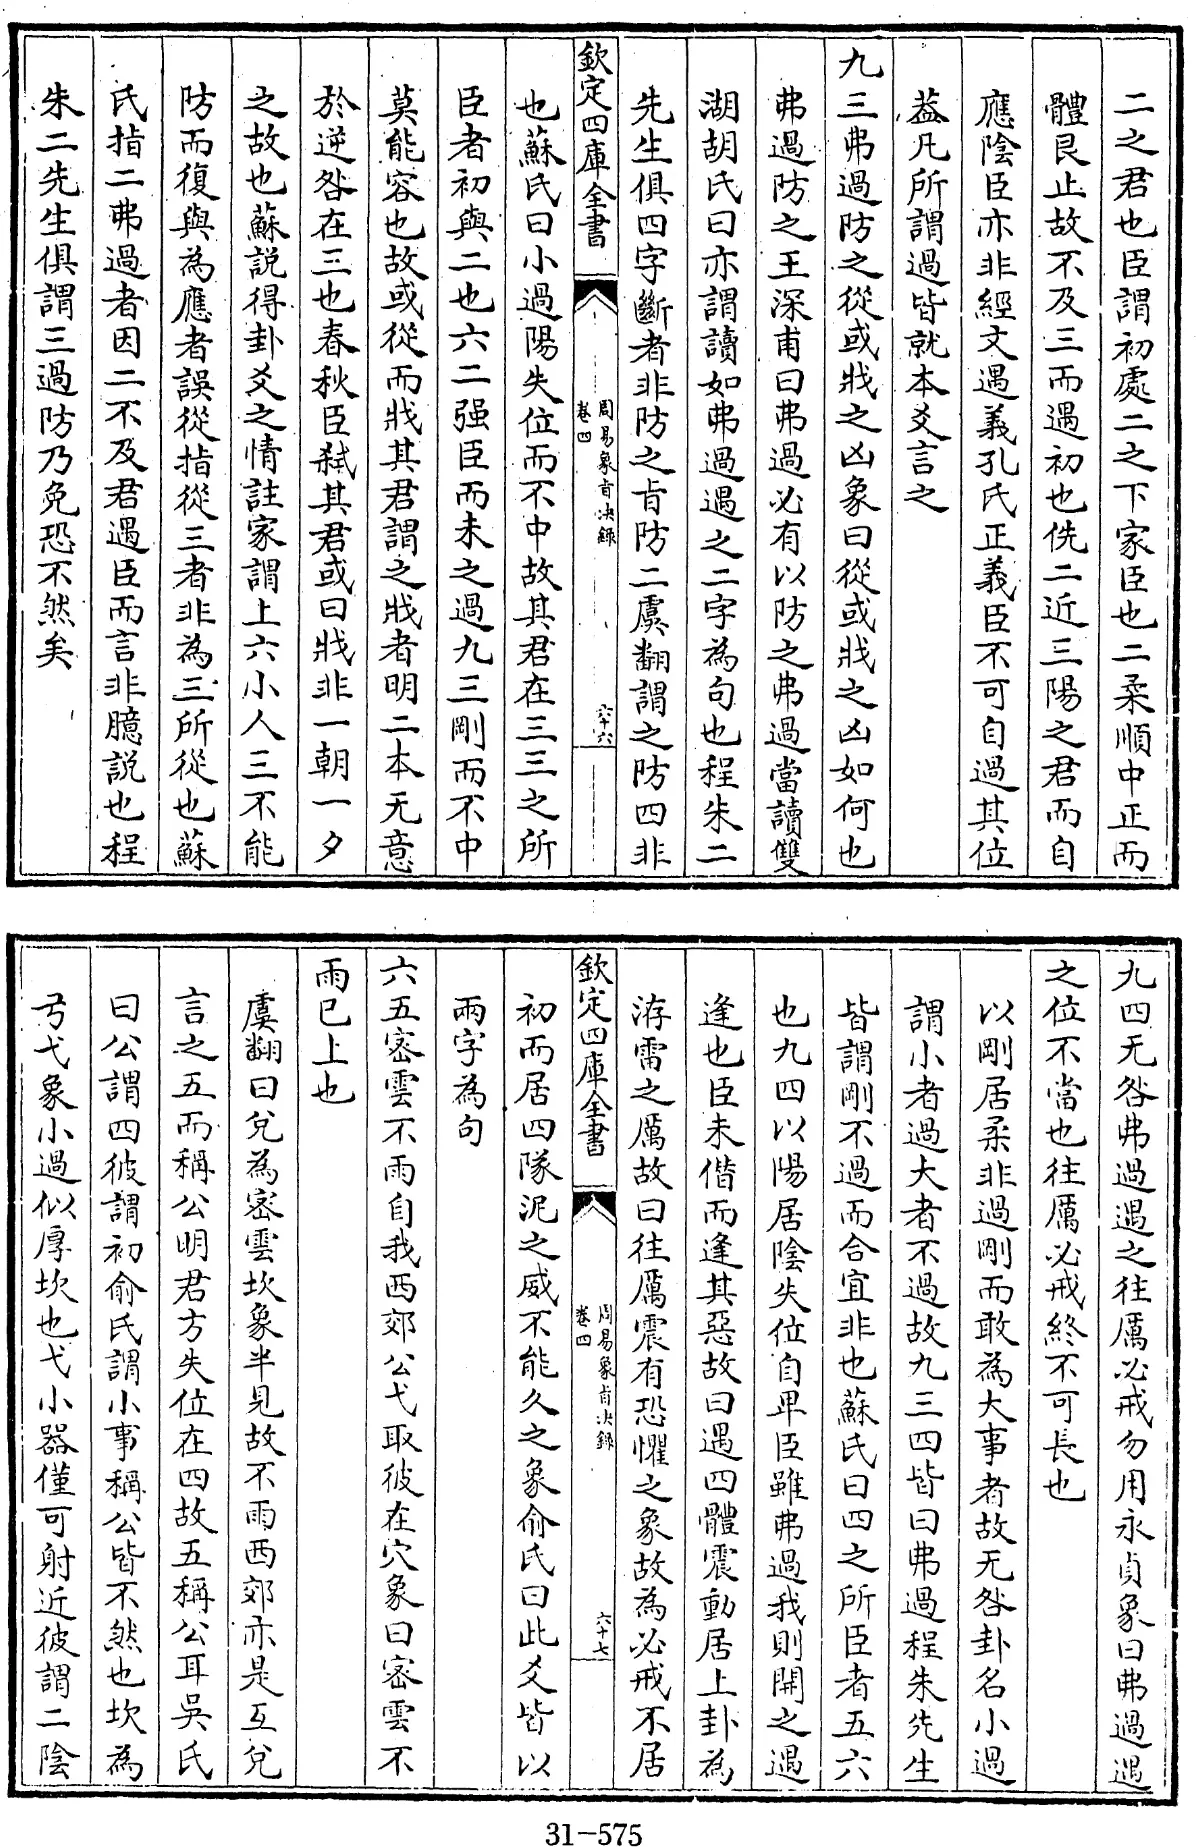 二之君也臣謂初處二之下家臣也二柔順中正而
體艮止故不及三而遇初也侁二近三陽之君而自
應陰臣亦非經文遇義孔氏正義臣不可自過其位
葢凡所謂過皆就本爻言之
九三弗過防之從或戕之凶象曰從或戕之凶如何也
弗過防之王深甫曰弗過必有以防之弗過當讀雙
湖胡氏曰亦謂讀如弗過遇之二字為句也程朱二
先生俱四字斷者非防之㫖防二虞翻謂之防四非
欽定四庫全書
周易象旨決錄
卷四
六十六
也蘇氏曰小過陽失位而不中故其君在三三之所
臣者初與二也六二强臣而未之過九三剛而不中
莫能容也故或從而戕其君謂之戕者明二本无意
於逆咎在三也春秋臣弑其君或曰戕非一朝一夕
之故也蘇説得卦爻之情註家謂上六小人三不能
防而復與為應者誤從指從三者非為三所從也蘇
氏指二弗過者因二不及君遇臣而言非臆説也程
朱二先生俱謂三過防乃免恐不然矣
九四无咎弗過遇之往厲必戒勿用永貞象曰弗過遇
之位不當也往厲必戒終不可長也
以剛居柔非過剛而敢為大事者故无咎卦名小過
謂小者過大者不過故九三四皆曰弗過程朱先生
皆謂剛不過而合宜非也蘇氏曰四之所臣者五六
也九四以陽居陰失位自卑臣雖弗過我則開之遇
逢也臣未僭而逢其惡故曰遇四體震動居上卦為
洊雷之厲故曰往厲震有恐懼之象故為必戒不居
欽定四庫全書
周易象旨決錄
卷四
六十七
初而居四隊泥之威不能久之象俞氏曰此爻皆以
兩字為句
六五密雲不雨自我西郊公弋取彼在穴象曰密雲不
雨已上也
虞翻曰兌為密雲坎象半見故不雨西郊亦是互兌
言之五而稱公明君方失位在四故五稱公耳吳氏
曰公謂四彼謂初俞氏謂小事稱公皆不然也坎為
弓弋象小過似厚坎也弋小器僅可射近彼謂二陰
31-575